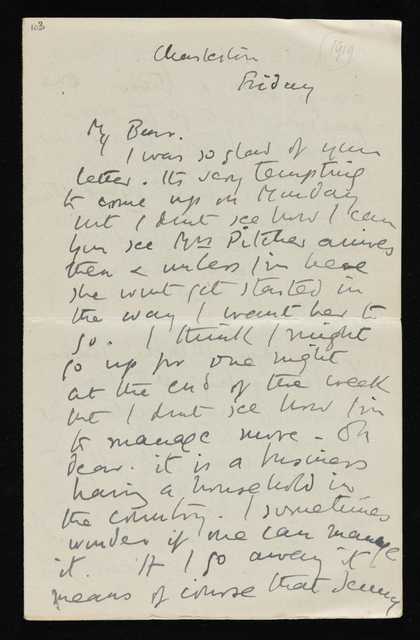 103
1919
Charleston
Friday
My Bear.
I was so glad of your
letter. Its very tempting
to come up on Monday
but I dont see how I can
You see Mrs Pitcher arrives
then & unless I'm here
she wont get started in
the way I want her to
go. I think I might
go up for one night
at the end of the week
but I dont see how I'm
to manage more - Oh
dear. it is a business
having a household in
the country. I sometimes
wonder if one can manage
it. If I go away it
means of course that Jenny